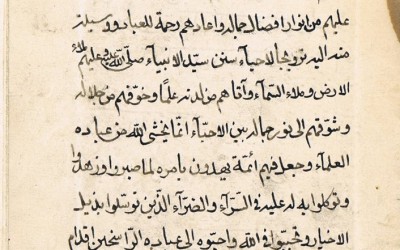 عليهم من انوار افضال جماله واعادهم رحمة للعباد و وسيلة
منه اليه ترويجا لاحياء سنن سيد الانبياء صلى الله عليه و عليهم ملاء
الارض و ملاء السماء وآتاهم من لدنه علما و خوفهم من جلاله
و شوقهم الى نور جماله بين الاحباء انما يخشى الله من عباده
العلماء و جعل فيهم ائمة يهدون بامره لما صبروا
و توكلوا به له عليه فى السراء والضراء الذين توسلوا بذيل
الاخيار و تحببوا فى الله واحبوه الى عباده الراسخين اقدام